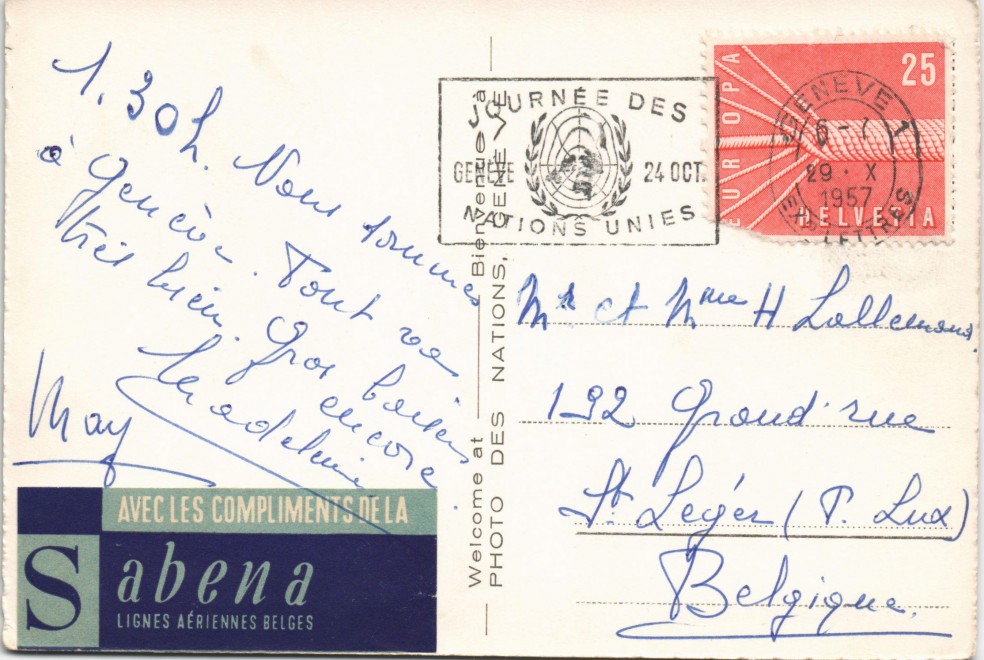 1.30h. Nous sommes
à Genève. Tout va
très bien. Gros baisers
encore
Madeleine
May
AVEC LES COMPLIMENTS DE LA
Sabena
LIGNES AÉRIENNES BELGES
Welcome at Bienvenue à
PHOTO DES NATIONS, GENÈVE
JOURNÉE DES
GENÈVE 24 OCT.
NATIONS UNIES
25
EUROPA
HELVETIA
GENÈVE 1
6-7
29.X
1957
EXP. LETTRES
Mr et Mme H Lallemand
192 Grand'rue
St. Léger (P. Lux)
Belgique.